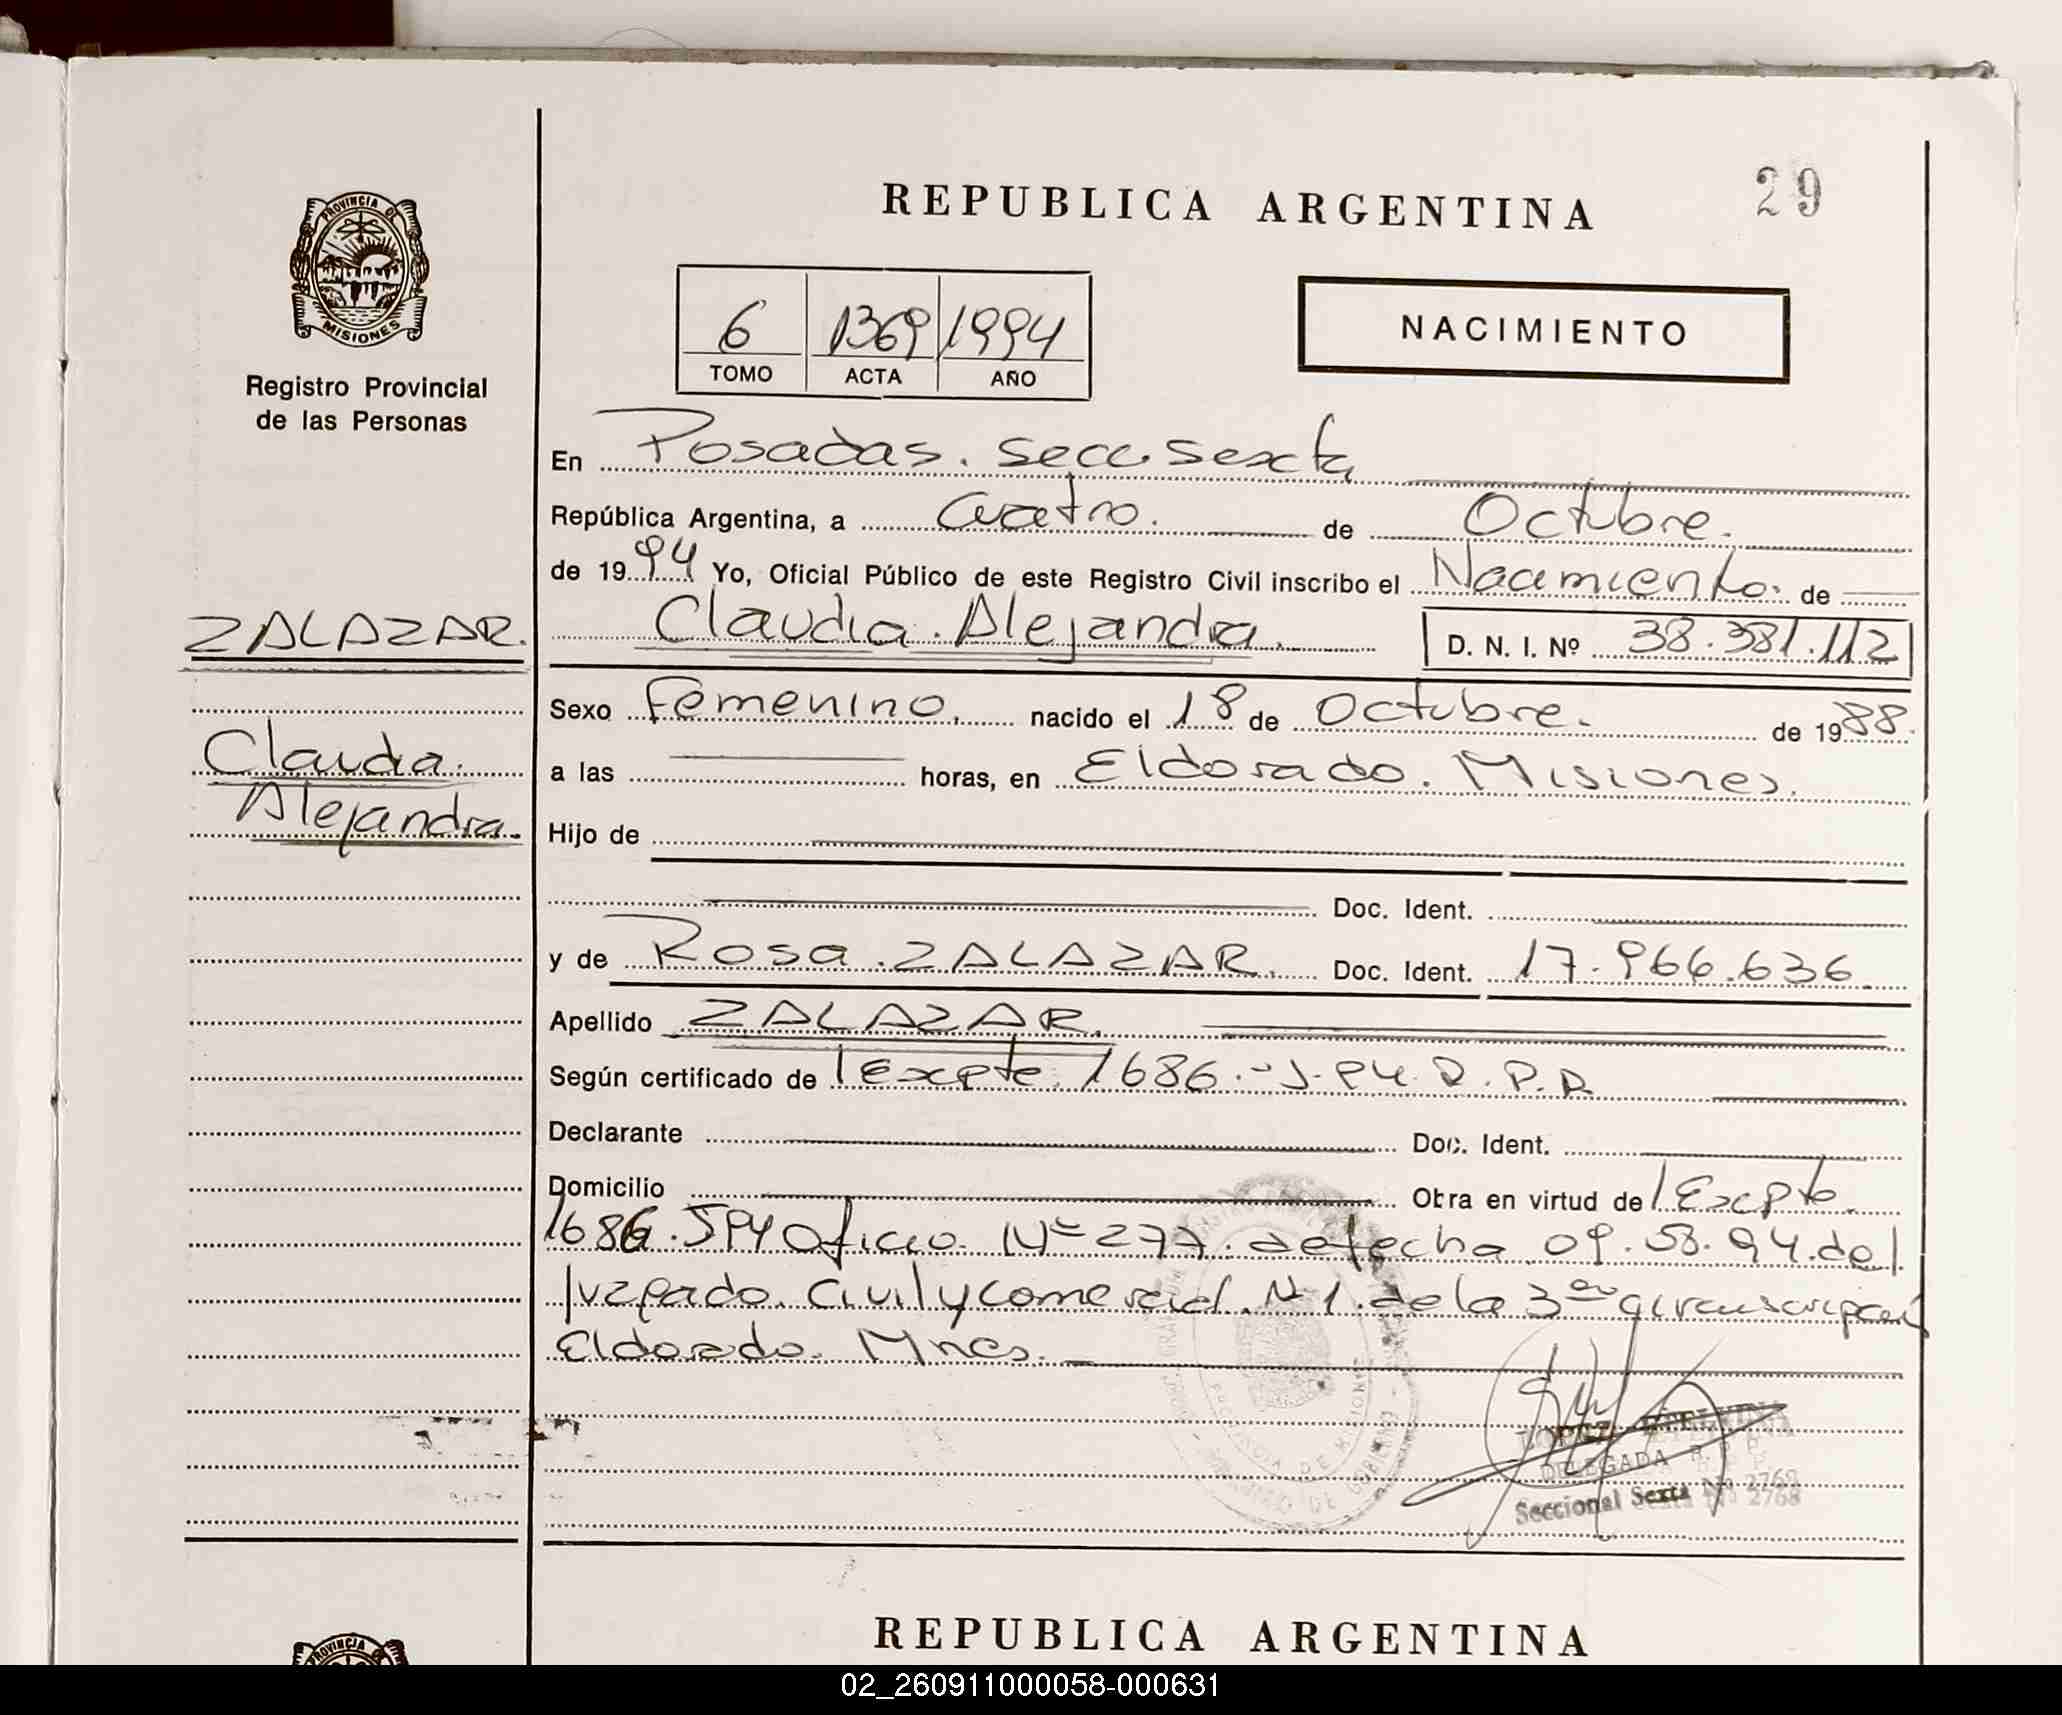 REPUBLICA ARGENTINA
29
PROVINCIA DE
MISIONES
Registro Provincial
de las Personas
6 1369 1994
TOMO ACTA AÑO
NACIMIENTO
En Posadas. Secc. Sexta
República Argentina, a Cuatro. de Octubre.
de 1994 Yo, Oficial Público de este Registro Civil inscribo el Nacimiento. de
ZALAZAR.
Claudia. Alejandra. D. N. I. Nº 38.381.112
Sexo Femenino. nacido el 18 de Octubre. de 1988.
Claudia.
a las horas, en Eldorado. Misiones.
Alejandra.
Hijo de
Doc. Ident.
y de Rosa. ZALAZAR. Doc. Ident. 17.966.636
Apellido ZALAZAR.
Según certificado de Expte. 1686.- J.P4. R.P.P.
Declarante Doc. Ident.
Domicilio Obra en virtud de Expte.
1686.JP4 Oficio. Nº 277. de fecha 09. .94. del
Juzgado. Civil y Comercial. Nº 1. de la 3era circunscripción
Eldorado. Mnes.
PROVINCIA DE MISIONES
DE GOBIERNO
LOPEZ
DELEGADA
Seccional Sexta Nº 2768
REPUBLICA ARGENTINA
PROVINCIA
02_260911000058-000631